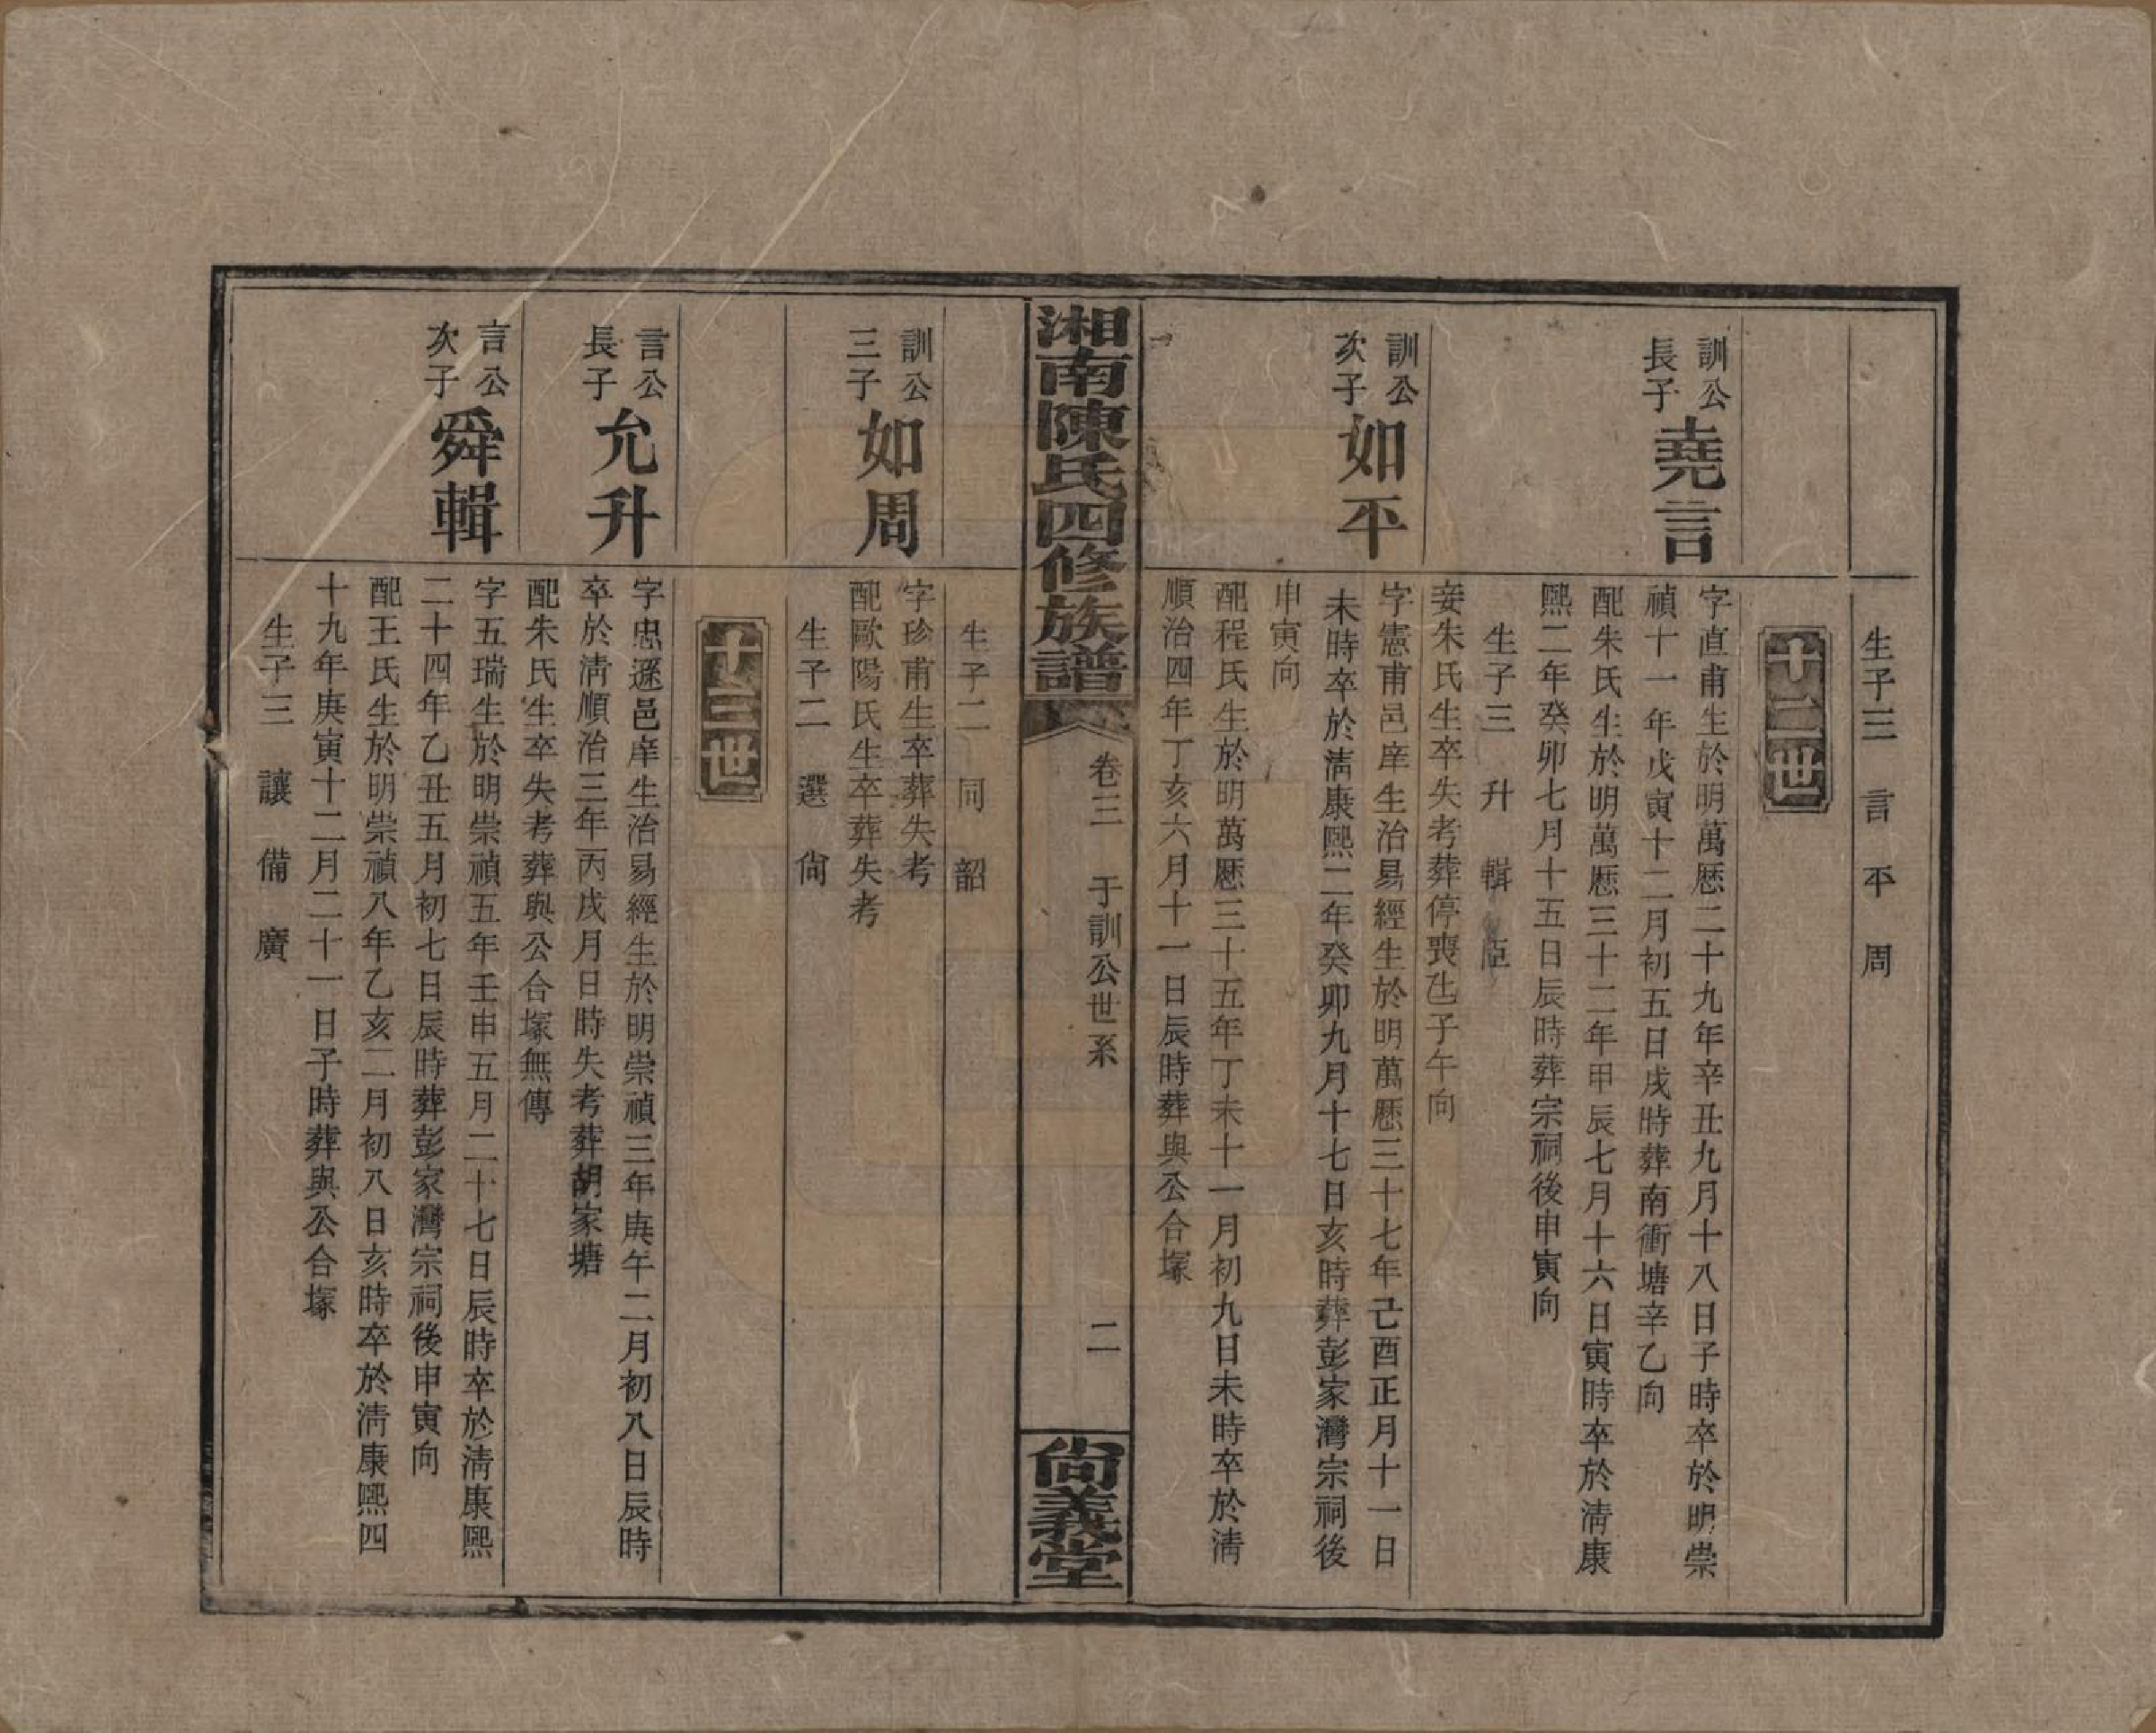 生子三　言　平　周
十二世
訓公
長子
堯言
字直甫生於明萬厯二十九年辛丑九月十八日子時卒於明崇
禎十一年戊寅十二月初五日戌時葬南衝塘辛乙向
配朱氏生於明萬厯三十二年甲辰七月十六日寅時卒於淸康
熙二年癸卯七月十五日辰時葬宗祠後申寅向
生子三　升　輯　臣
妾朱氏生卒失考葬停喪坵子午向
訓公
次子
如平
字憲甫邑庠生治易經生於明萬厯三十七年己酉正月十一日
未時卒於淸康熙二年癸卯九月十七日亥時葬彭家灣宗祠後
申寅向
配程氏生於明萬厯三十五年丁未十一月初九日未時卒於淸
順治四年丁亥六月十一日辰時葬與公合塚
湘南陳氏四修族譜
卷三　于訓公世系
二
尙義堂
生子二　同　韶
訓公
三子
如周
字珍甫生卒葬失考
配歐陽氏生卒葬失考
生子二　選　尙
十三世
言公
長子
允升
字忠遜邑庠生治易經生於明崇禎三年庚午二月初八日辰時
卒於淸順治三年丙戌月日時失考葬胡家塘
配朱氏生卒失考葬與公合塚無傳
言公
次子
舜輯
字五瑞生於明崇禎五年壬申五月二十七日辰時卒於淸康熙
二十四年乙丑五月初七日辰時葬彭家灣宗祠後申寅向
配王氏生於明崇禎八年乙亥二月初八日亥時卒於淸康熙四
十九年庚寅十二月二十一日子時葬與公合塚
生子三　讓　備　廣